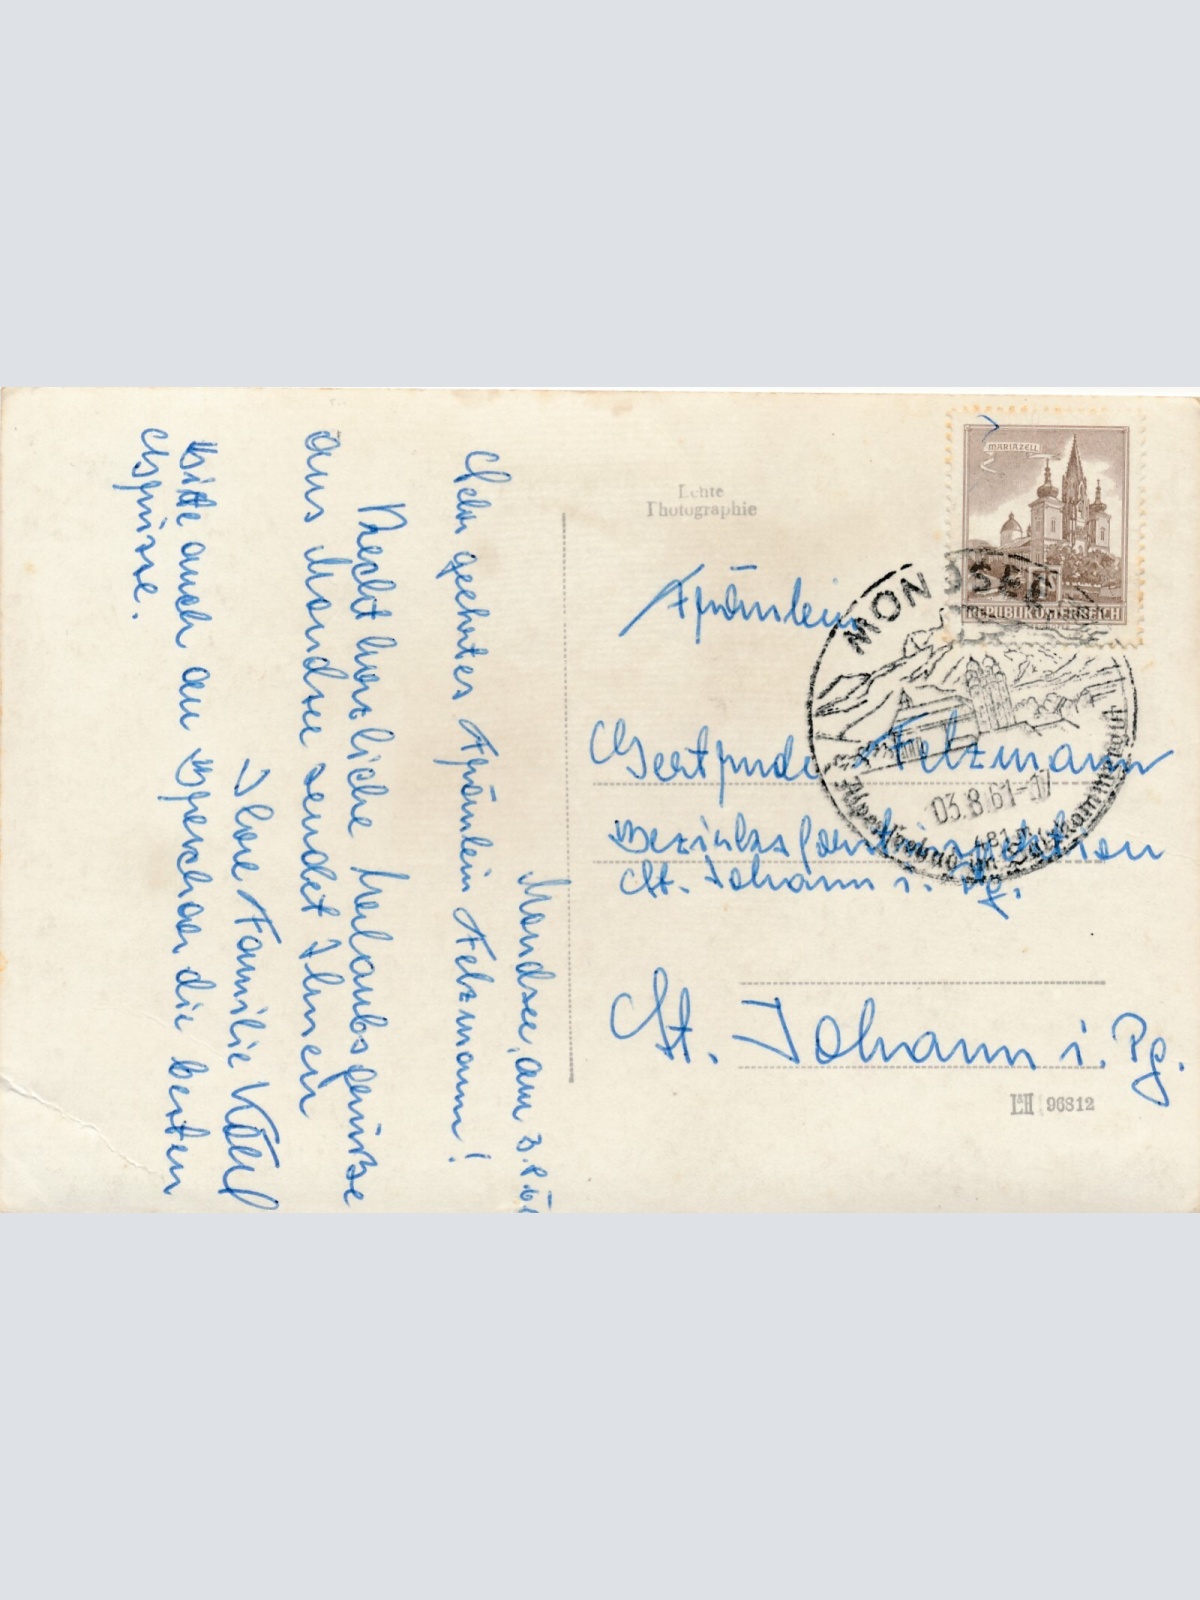 Mondsee, am 3.8.61
Sehr geehrtes Fräulein Felzmann!
Recht herzliche Urlaubsgrüsse
aus Mondsee sendet Ihnen
Ihre Familie
Bitte auch an die besten
Grüsse.
Echte
Photographie
MARIAZELL
REPUBLIK ÖSTERREICH
MONDSEE
03.8.61-17
481 m
Alpenseebad im Salzkammergut
Fräulein
Gertrude Felzmann
Bezirksforstinspektion
St. Johann i. Pg.
St. Johann i. Pg.
96812